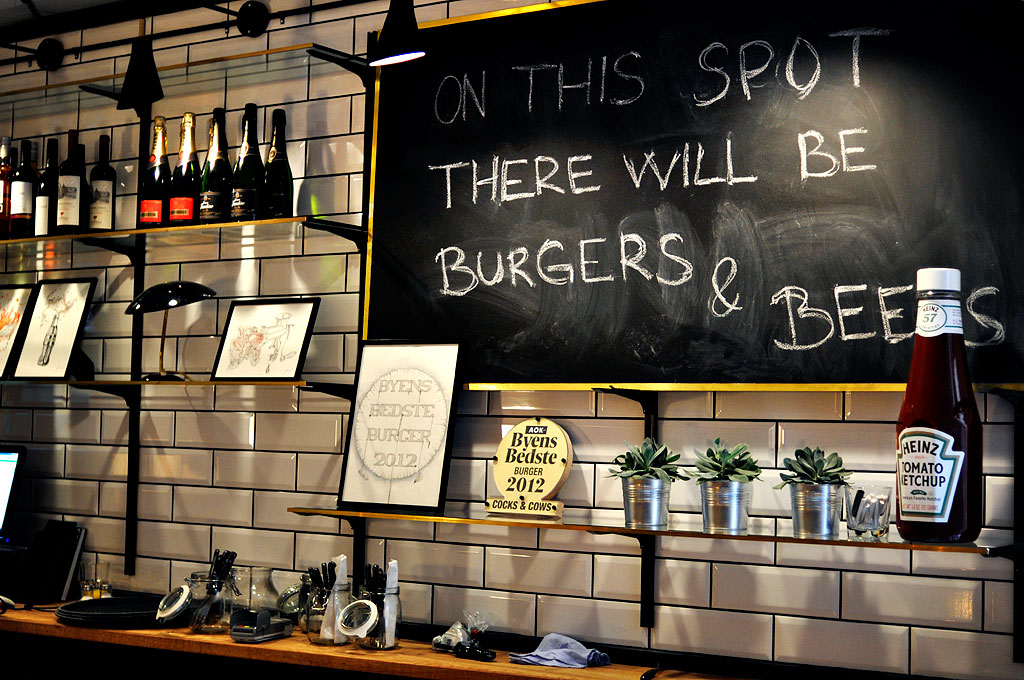 ON THIS SPOT
THERE WILL BE
BURGERS & BEERS
BYENS
BEDSTE
BURGER
2012
AOK
Byens
Bedste
BURGER
2012
COCKS & COWS
HEINZ
57
HEINZ
TOMATO
KETCHUP